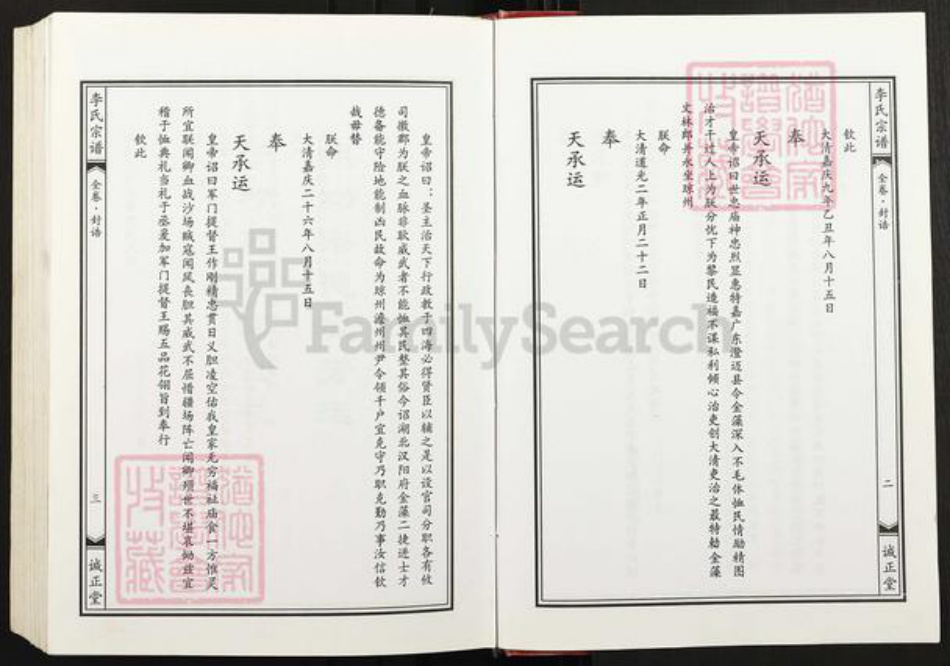 李氏宗谱
全卷·封诰
二
诚正堂
钦此
大清嘉庆九年乙丑年八月十五日
奉
天承运
皇帝诏曰世忠庙神忠烈显惠特嘉广东澄迈县令金藻深入不毛体恤民情励精图
治才干过人上为朕分忧下为黎民造福不谋私利倾心治吏创大清吏治之最特勅金藻
文林郎并永坐琼州
朕命
大清道光二年正月二十二日
奉
天承运
皇帝诏曰：圣主治天下行政教于四海必得贤臣以辅之是以设官司分职各有攸
司徽郡为朕之血脉非耿威武者不能恤其民整其俗今诏湖北汉阳府金藻二捷进士才
德备能守险地能制凶民故命为琼州澹州州尹令领千户宜克守乃职克勤乃事汝信钦
哉毋替
朕命
大清嘉庆二十六年八月十五日
奉
天承运
皇帝诏曰军门提督王作刚精忠贯日义胆凌空佑我皇家无穷福祉庙食一方惟灵
所宜联闻卿血战沙场贼寇闻风丧胆其威武不屈惜疆场阵亡闻卿殒世不堪哀恸兹宜
稽于恤典礼当礼于丞爰加军门提督王赐五品花翎旨到奉行
钦此
李氏宗谱
全卷·封诰
三
诚正堂
FamilySearch